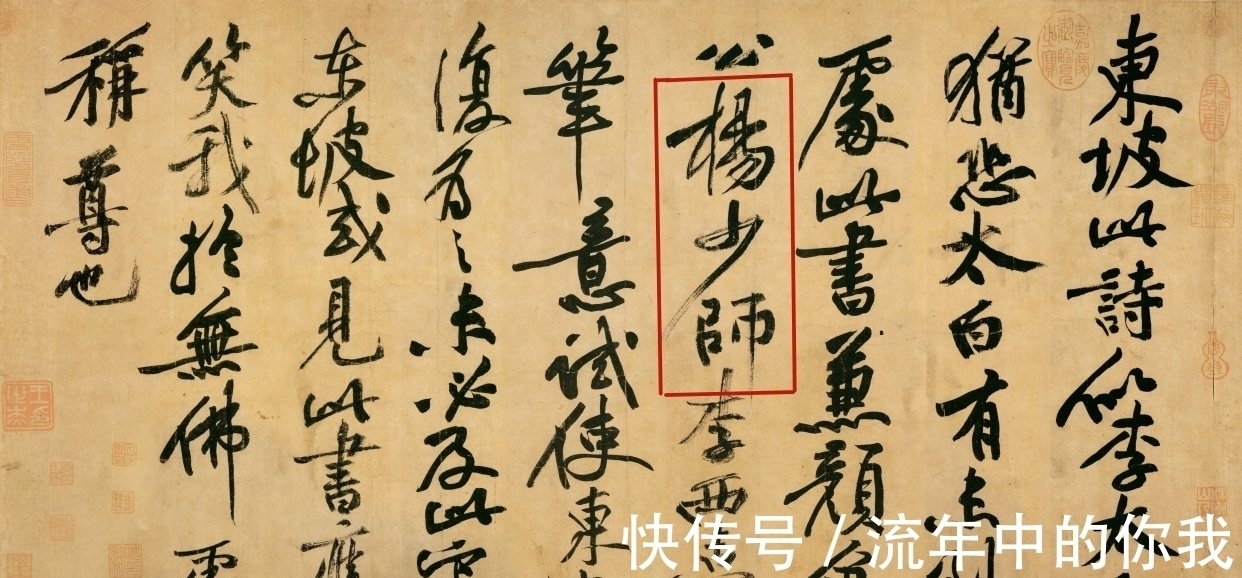 東坡此詩似李太
猶恐太白有未到
處此書兼顏
公楊少師李西
筆意試使東
復為之未必及此它
東坡或見此書應
笑我於無佛
稱尊也
快传号 / 流年中的你我